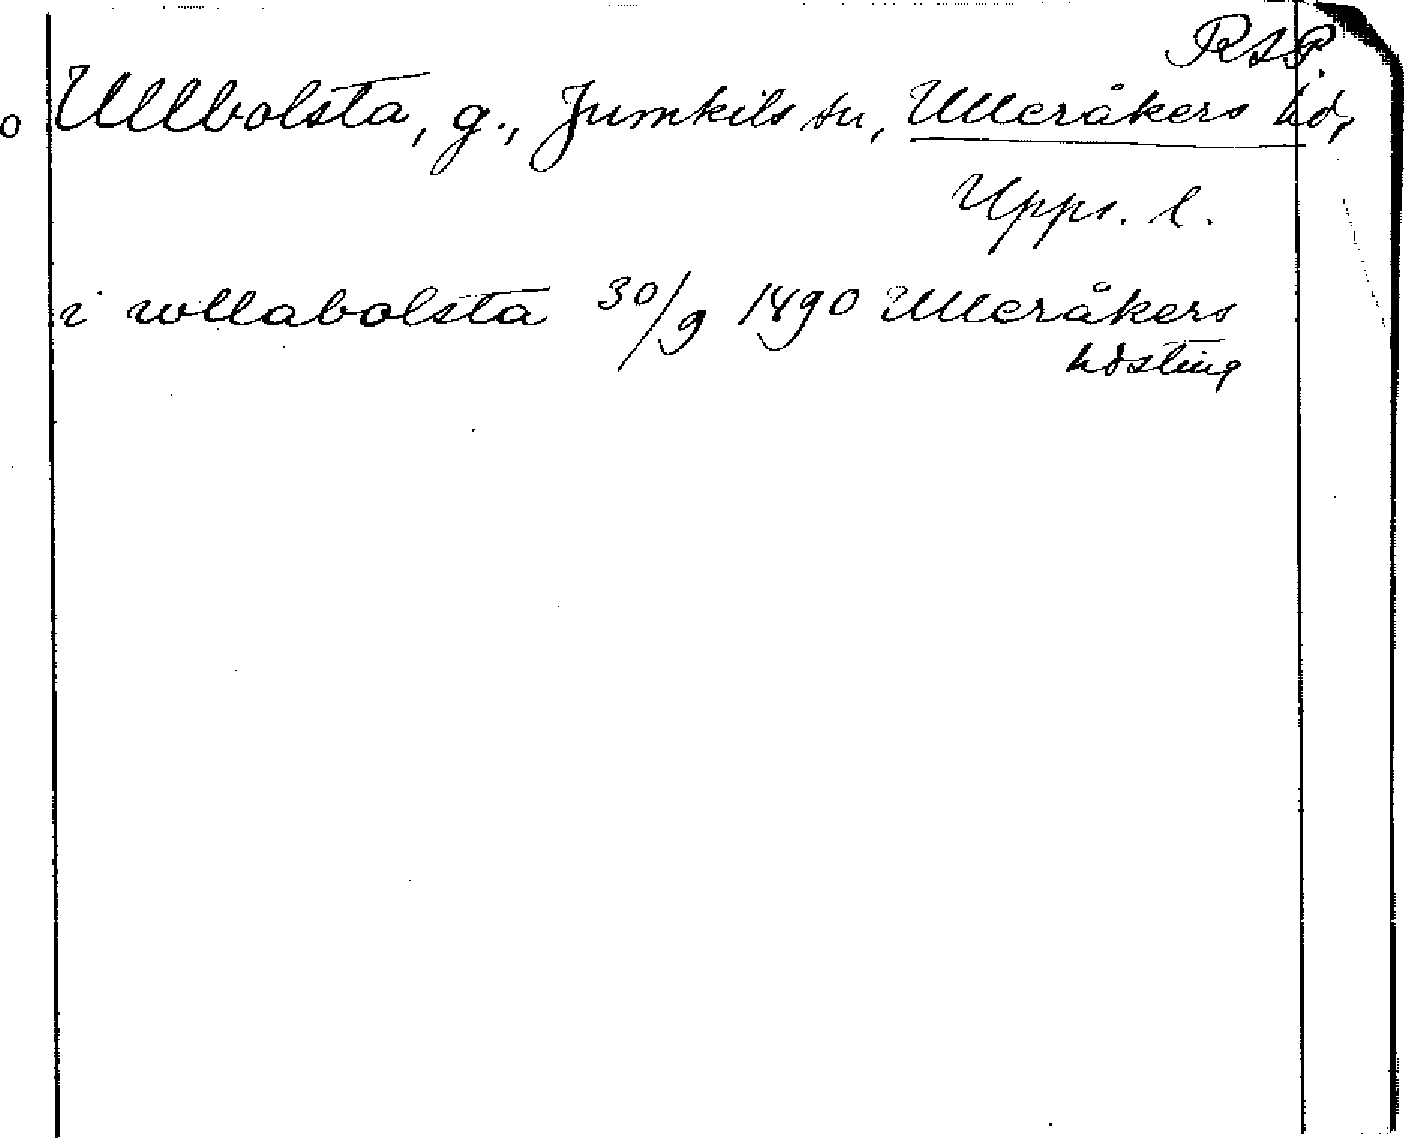 RAP.
o Ullbolsta, g., Jumkils sn, Ulleråkers hd,
Upps. l.
i wllabolsta 30/9 1490 Ulleråkers
hdsting